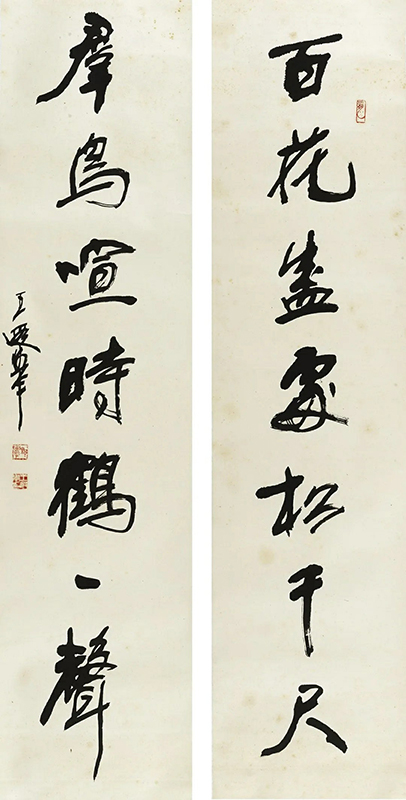 百花盛處松千尺
羣鳥喧時鶴一聲
王遐舉